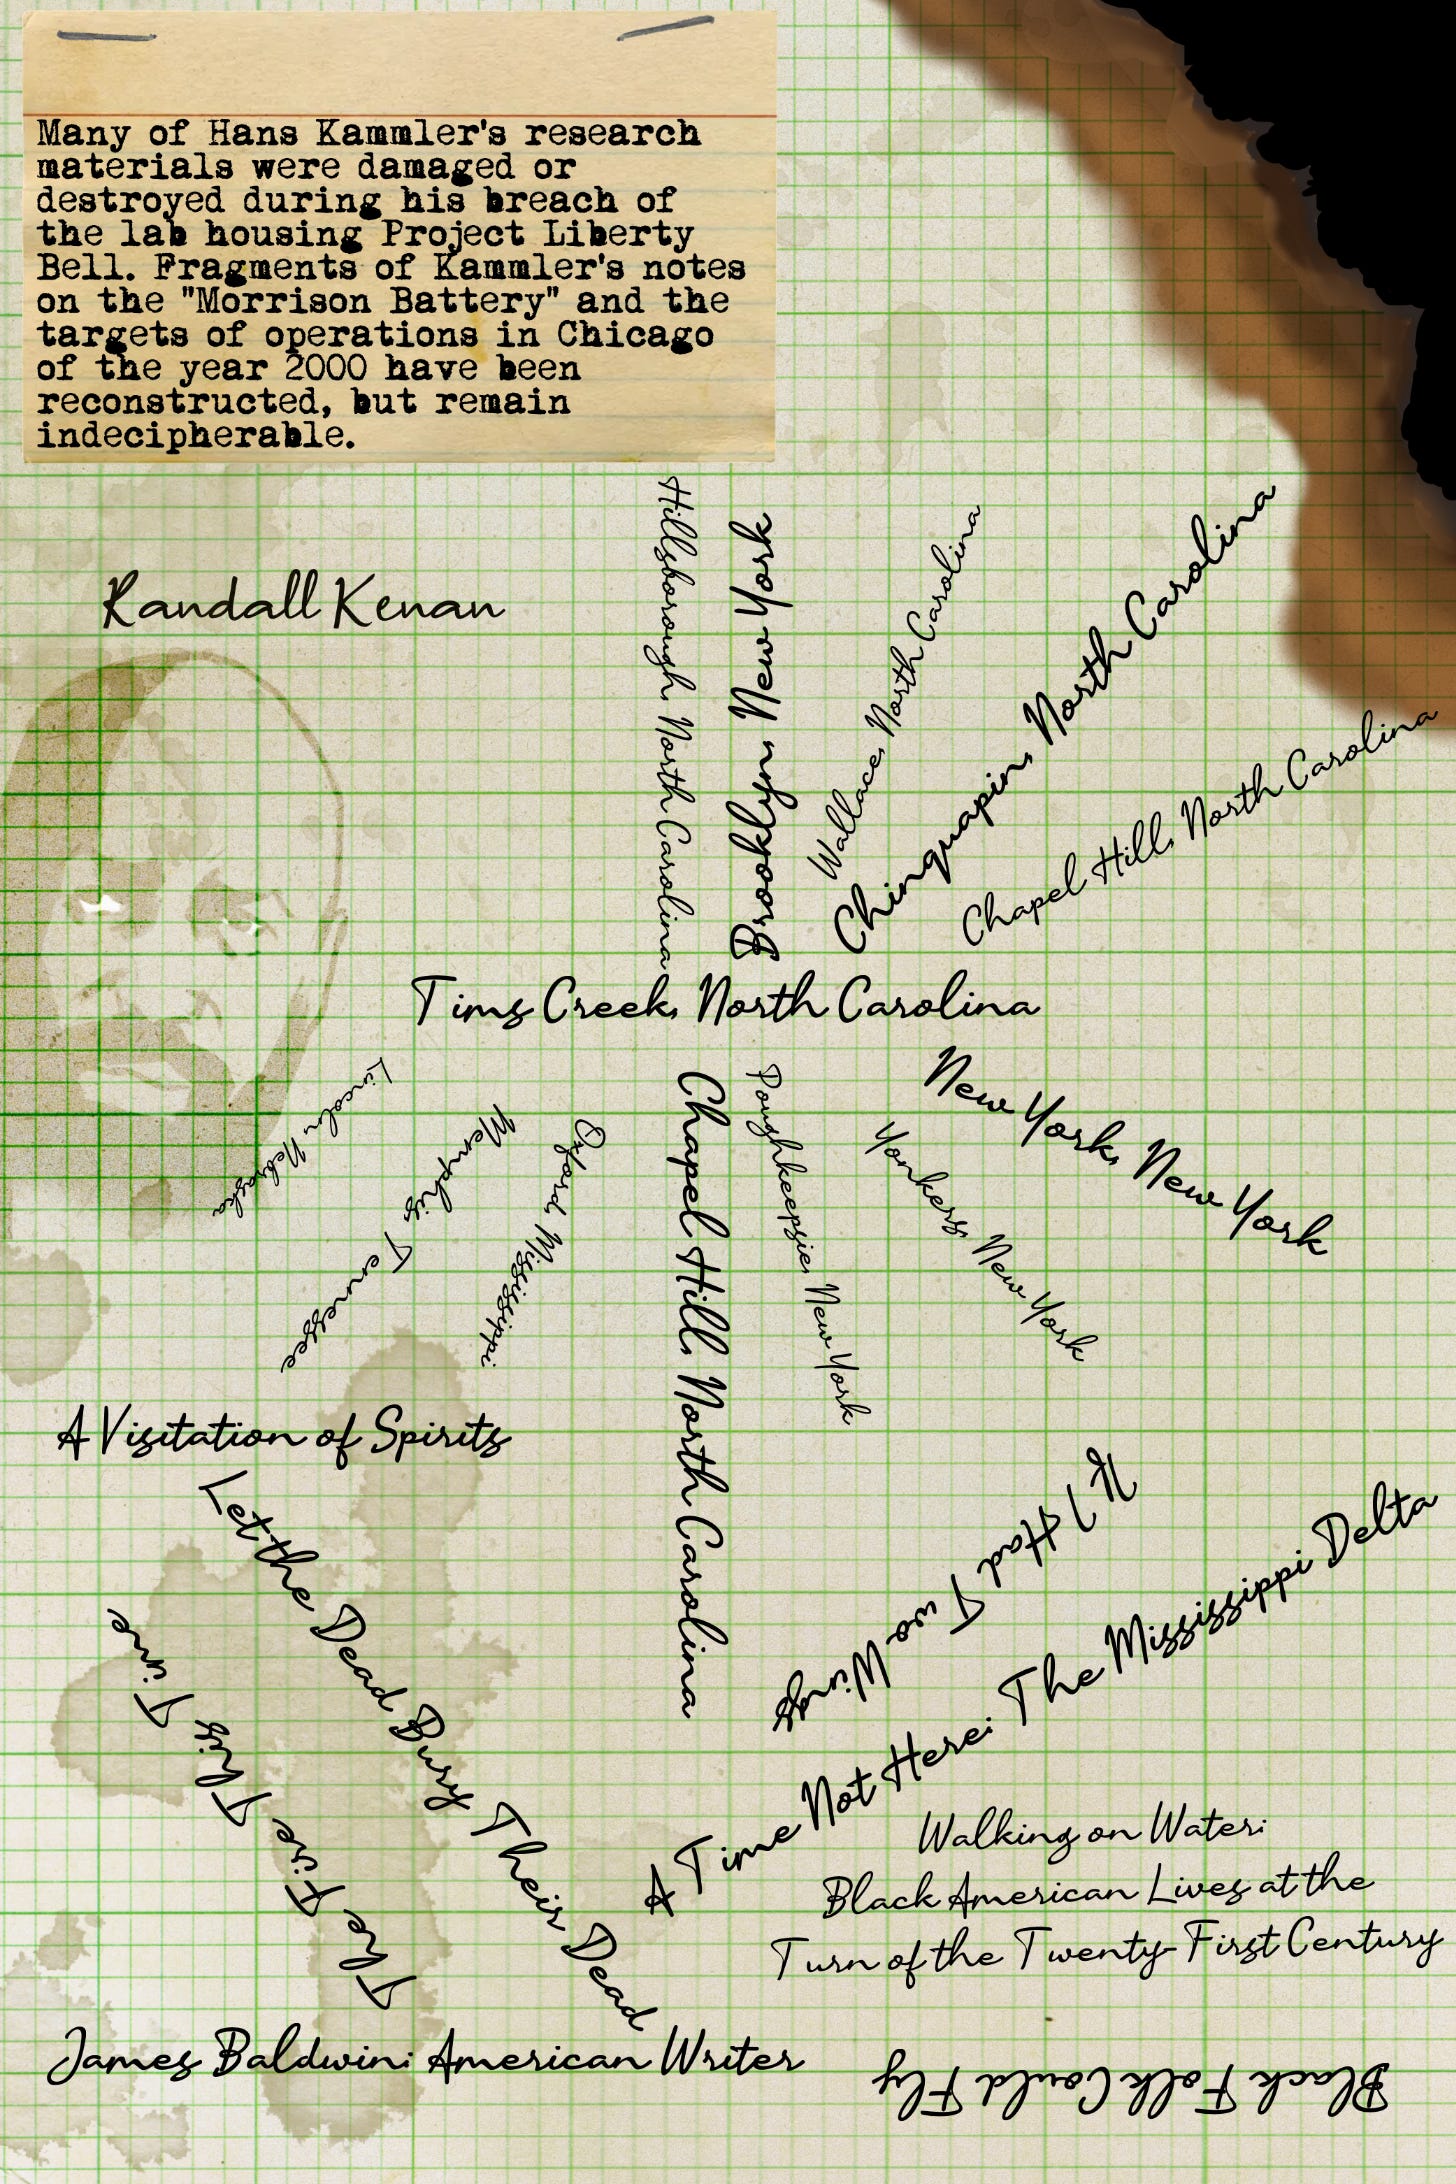 Many of Hans Kammler's research
materials were damaged or
destroyed during his breach of
the lab housing Project Liberty
Bell. Fragments of Kammler's notes
on the "Morrison Battery" and the
targets of operations in Chicago
of the year 2000 have been
reconstructed, but remain
indecipherable.
Randall Kenan
Hillsborough, North Carolina
Brooklyn, New York
Wallace, North Carolina
Chinquapin, North Carolina
Chapel Hill, North Carolina
Tims Creek, North Carolina
Lincoln, Nebraska
Memphis, Tennessee
Oxford, Mississippi
Chapel Hill, North Carolina
Poughkeepsie, New York
Yonkers, New York
New York, New York
A Visitation of Spirits
Let the Dead Bury Their Dead
The Fire This Time
If I Had Two Wings
A Time Not Here: The Mississippi Delta
Walking on Water:
Black American Lives at the
Turn of the Twenty-First Century
James Baldwin: American Writer
Black Folk Could Fly